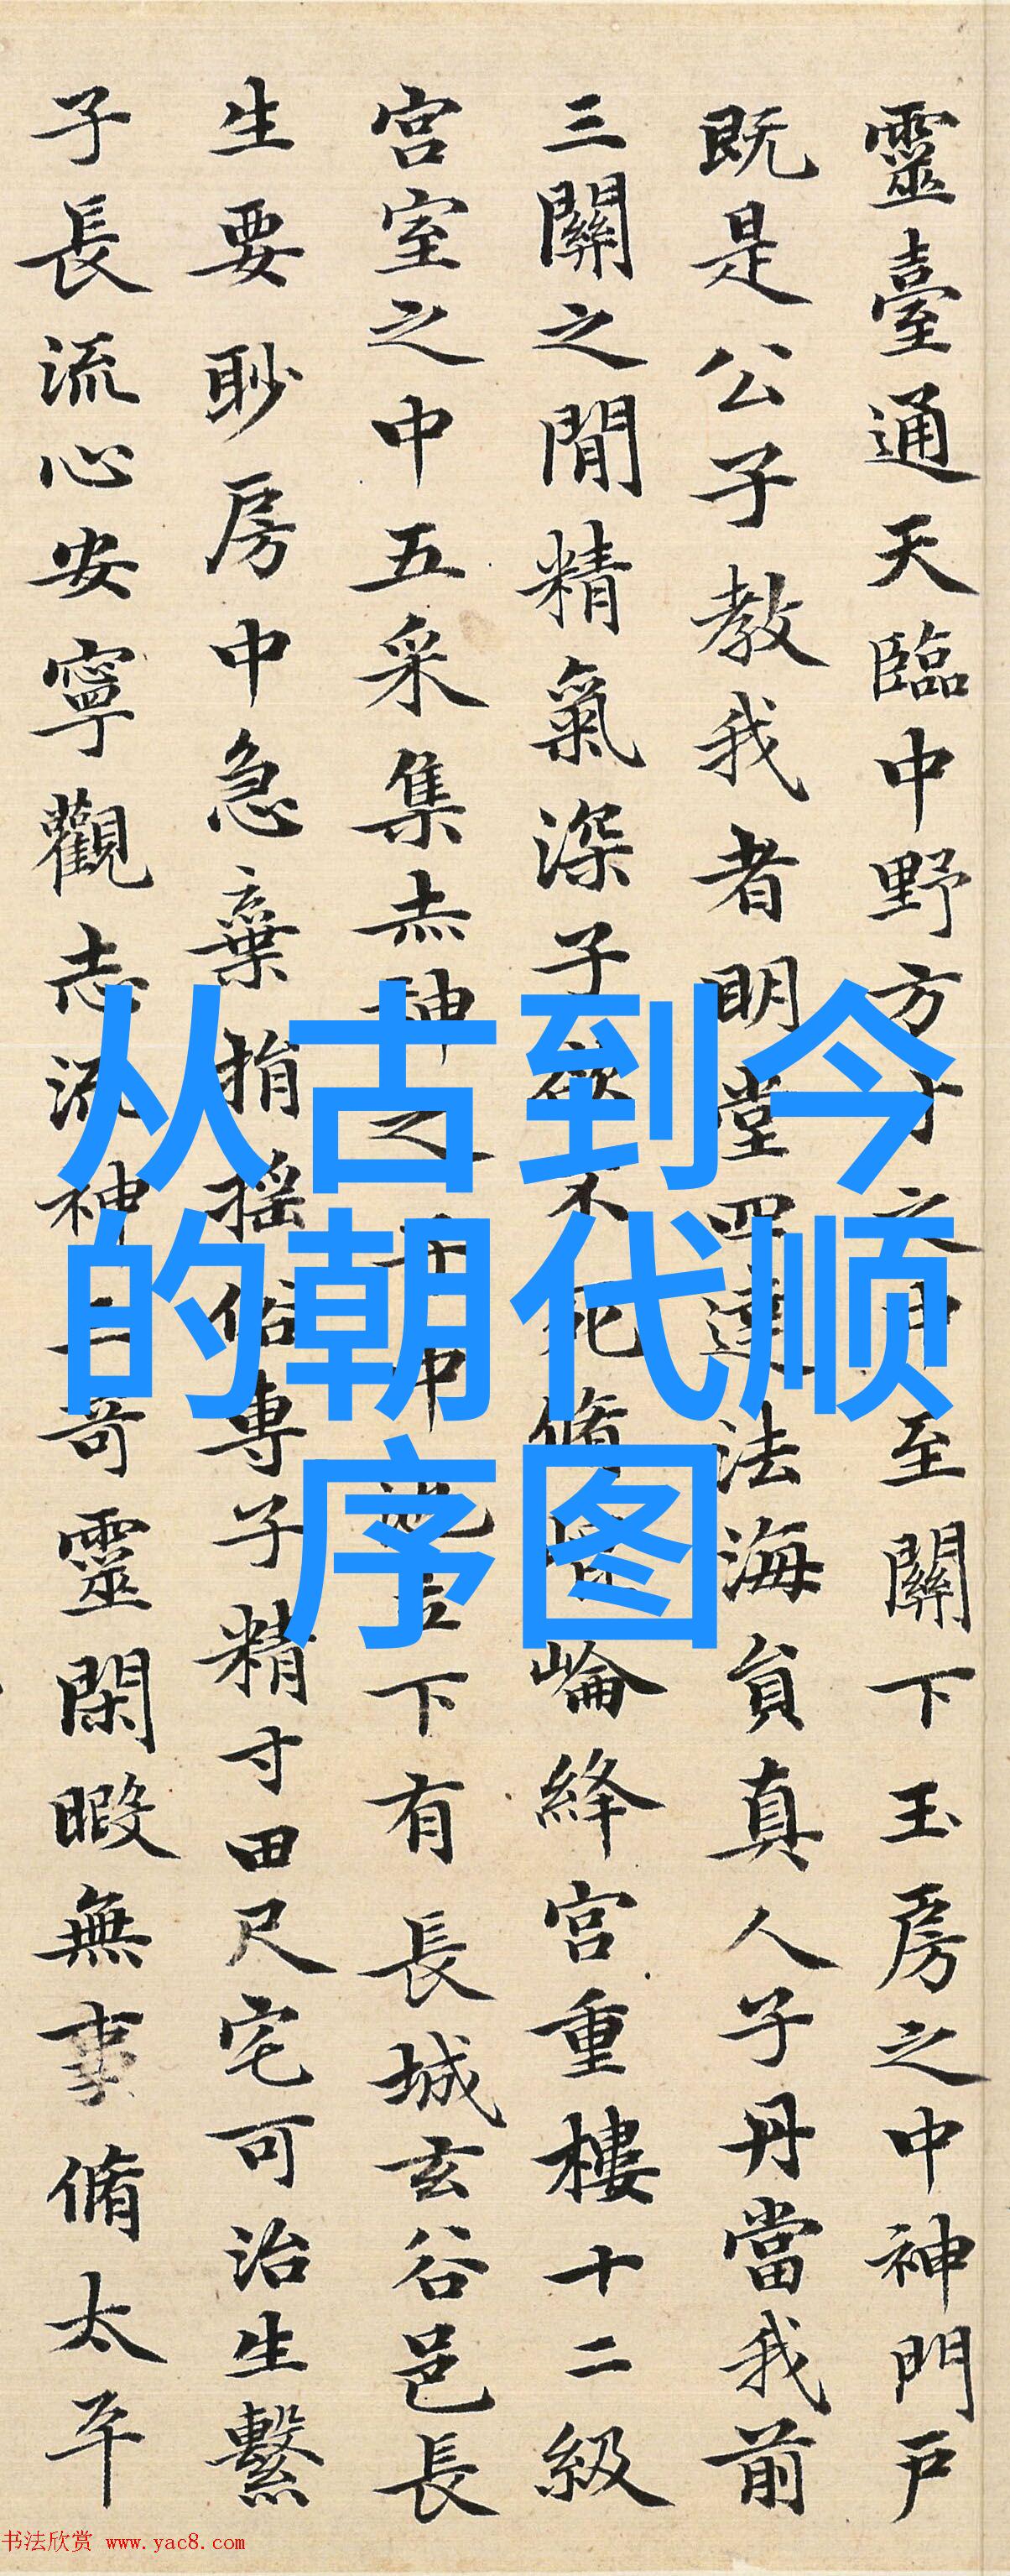 靈臺通天臨中野方寸之中至關下玉房之中神門戶
既是公子教我者明堂四達法海員真人子丹當我前
三關之閒精氣深子欲不死脩崐崘絳宮重樓十二級
宮室之中五采集赤神之子中池立下有長城玄谷邑長
生要眇房中急棄捐搖俗專子精寸田尺宅可治生繫
子長流心安寧觀志流神三奇靈閑暇無事脩太平
从古到今
的朝代顺
序图
书法欣赏 www.yac8.com